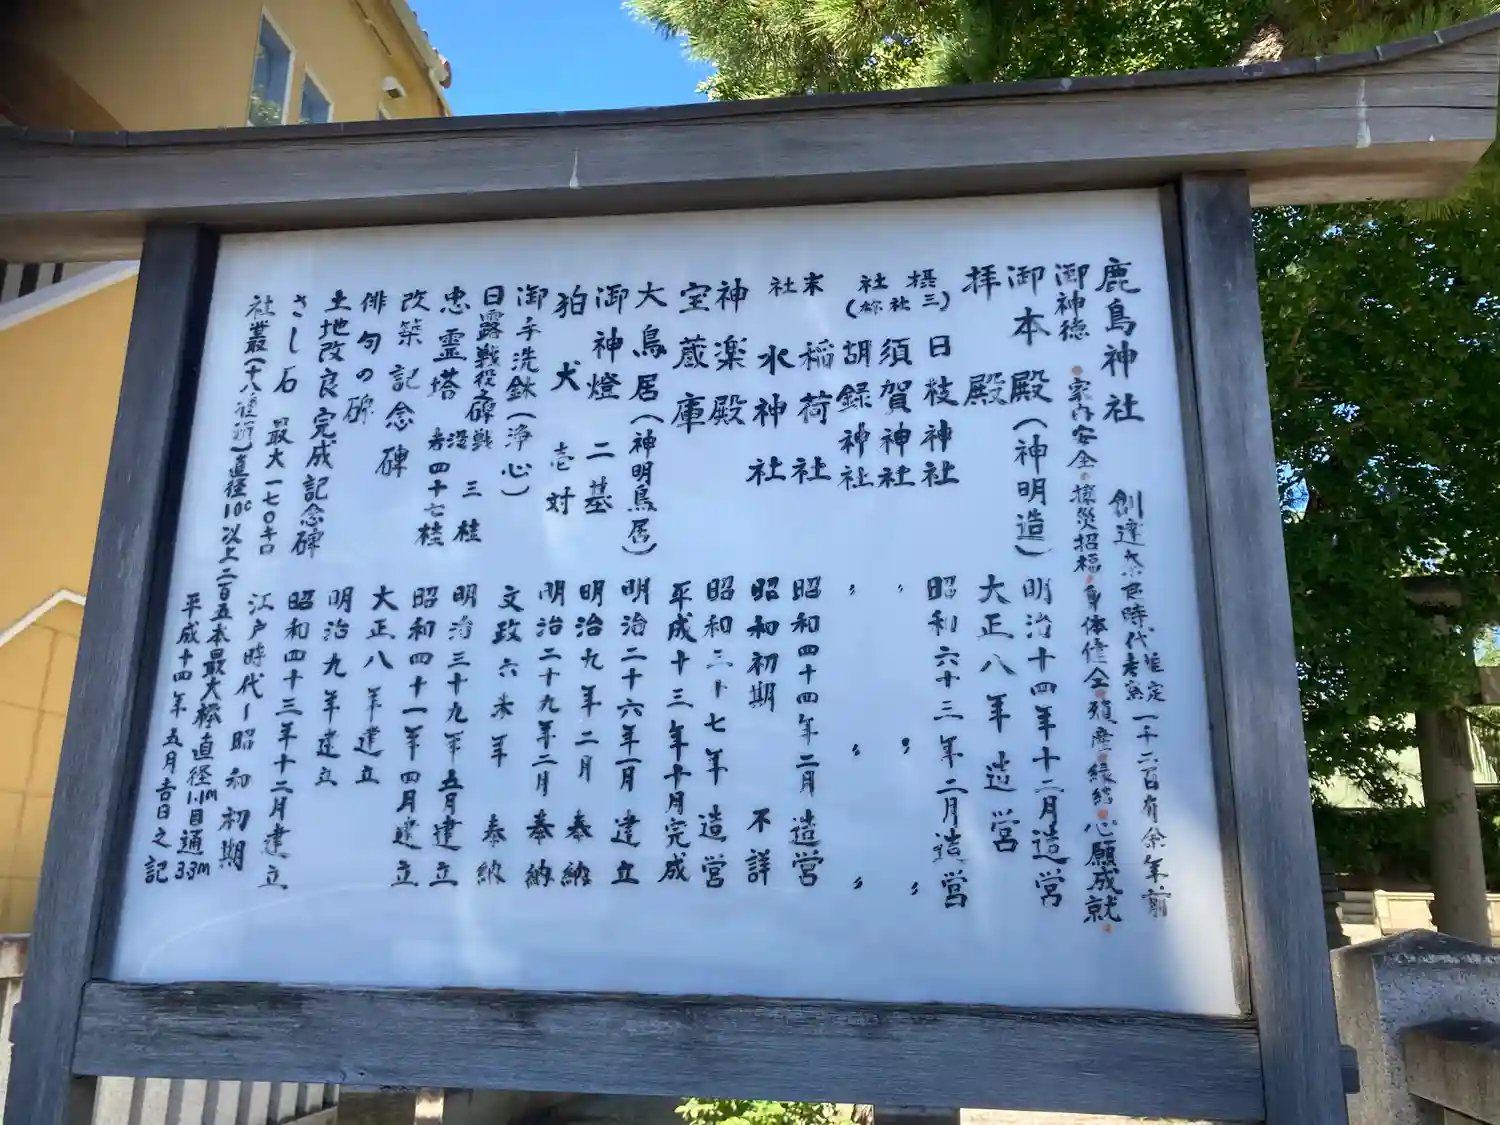 鹿島神社 創建奈良時代推定 一千二百有余年前
御神徳 家内安全 攘災招福 身体健全 殖産 縁結 心願成就
御本殿(神明造) 明治十四年十二月造営
拝殿 大正八年造営
摂社(三社) 日枝神社 昭和六十三年二月造営
須賀神社 〃 〃 〃
胡録神社 〃 〃 〃
末社 稲荷社 昭和四十四年二月造営
水神社 昭和初期 不詳
神楽殿 昭和三十七年造営
宝蔵庫 平成十三年十月完成
大鳥居(神明鳥居) 明治二十六年一月建立
御神燈 二基 明治九年二月奉納
狛犬 壱対 明治二十九年二月奉納
御手洗鉢(浄心) 文政六未年奉納
日露戦役之碑 戦没者 三桂 四十七桂 明治三十九年五月建立
忠霊塔 昭和四十一年四月建立
改築記念碑 大正八年建立
俳句の碑 明治九年建立
土地改良完成記念碑 昭和四十三年十二月建立
さし石 最大一七〇キロ 江戸時代ー昭和初期
社叢(十八種類)直径10c以上二百五本最大欅直径1.1m目通3.3m
平成十四年五月吉日之記